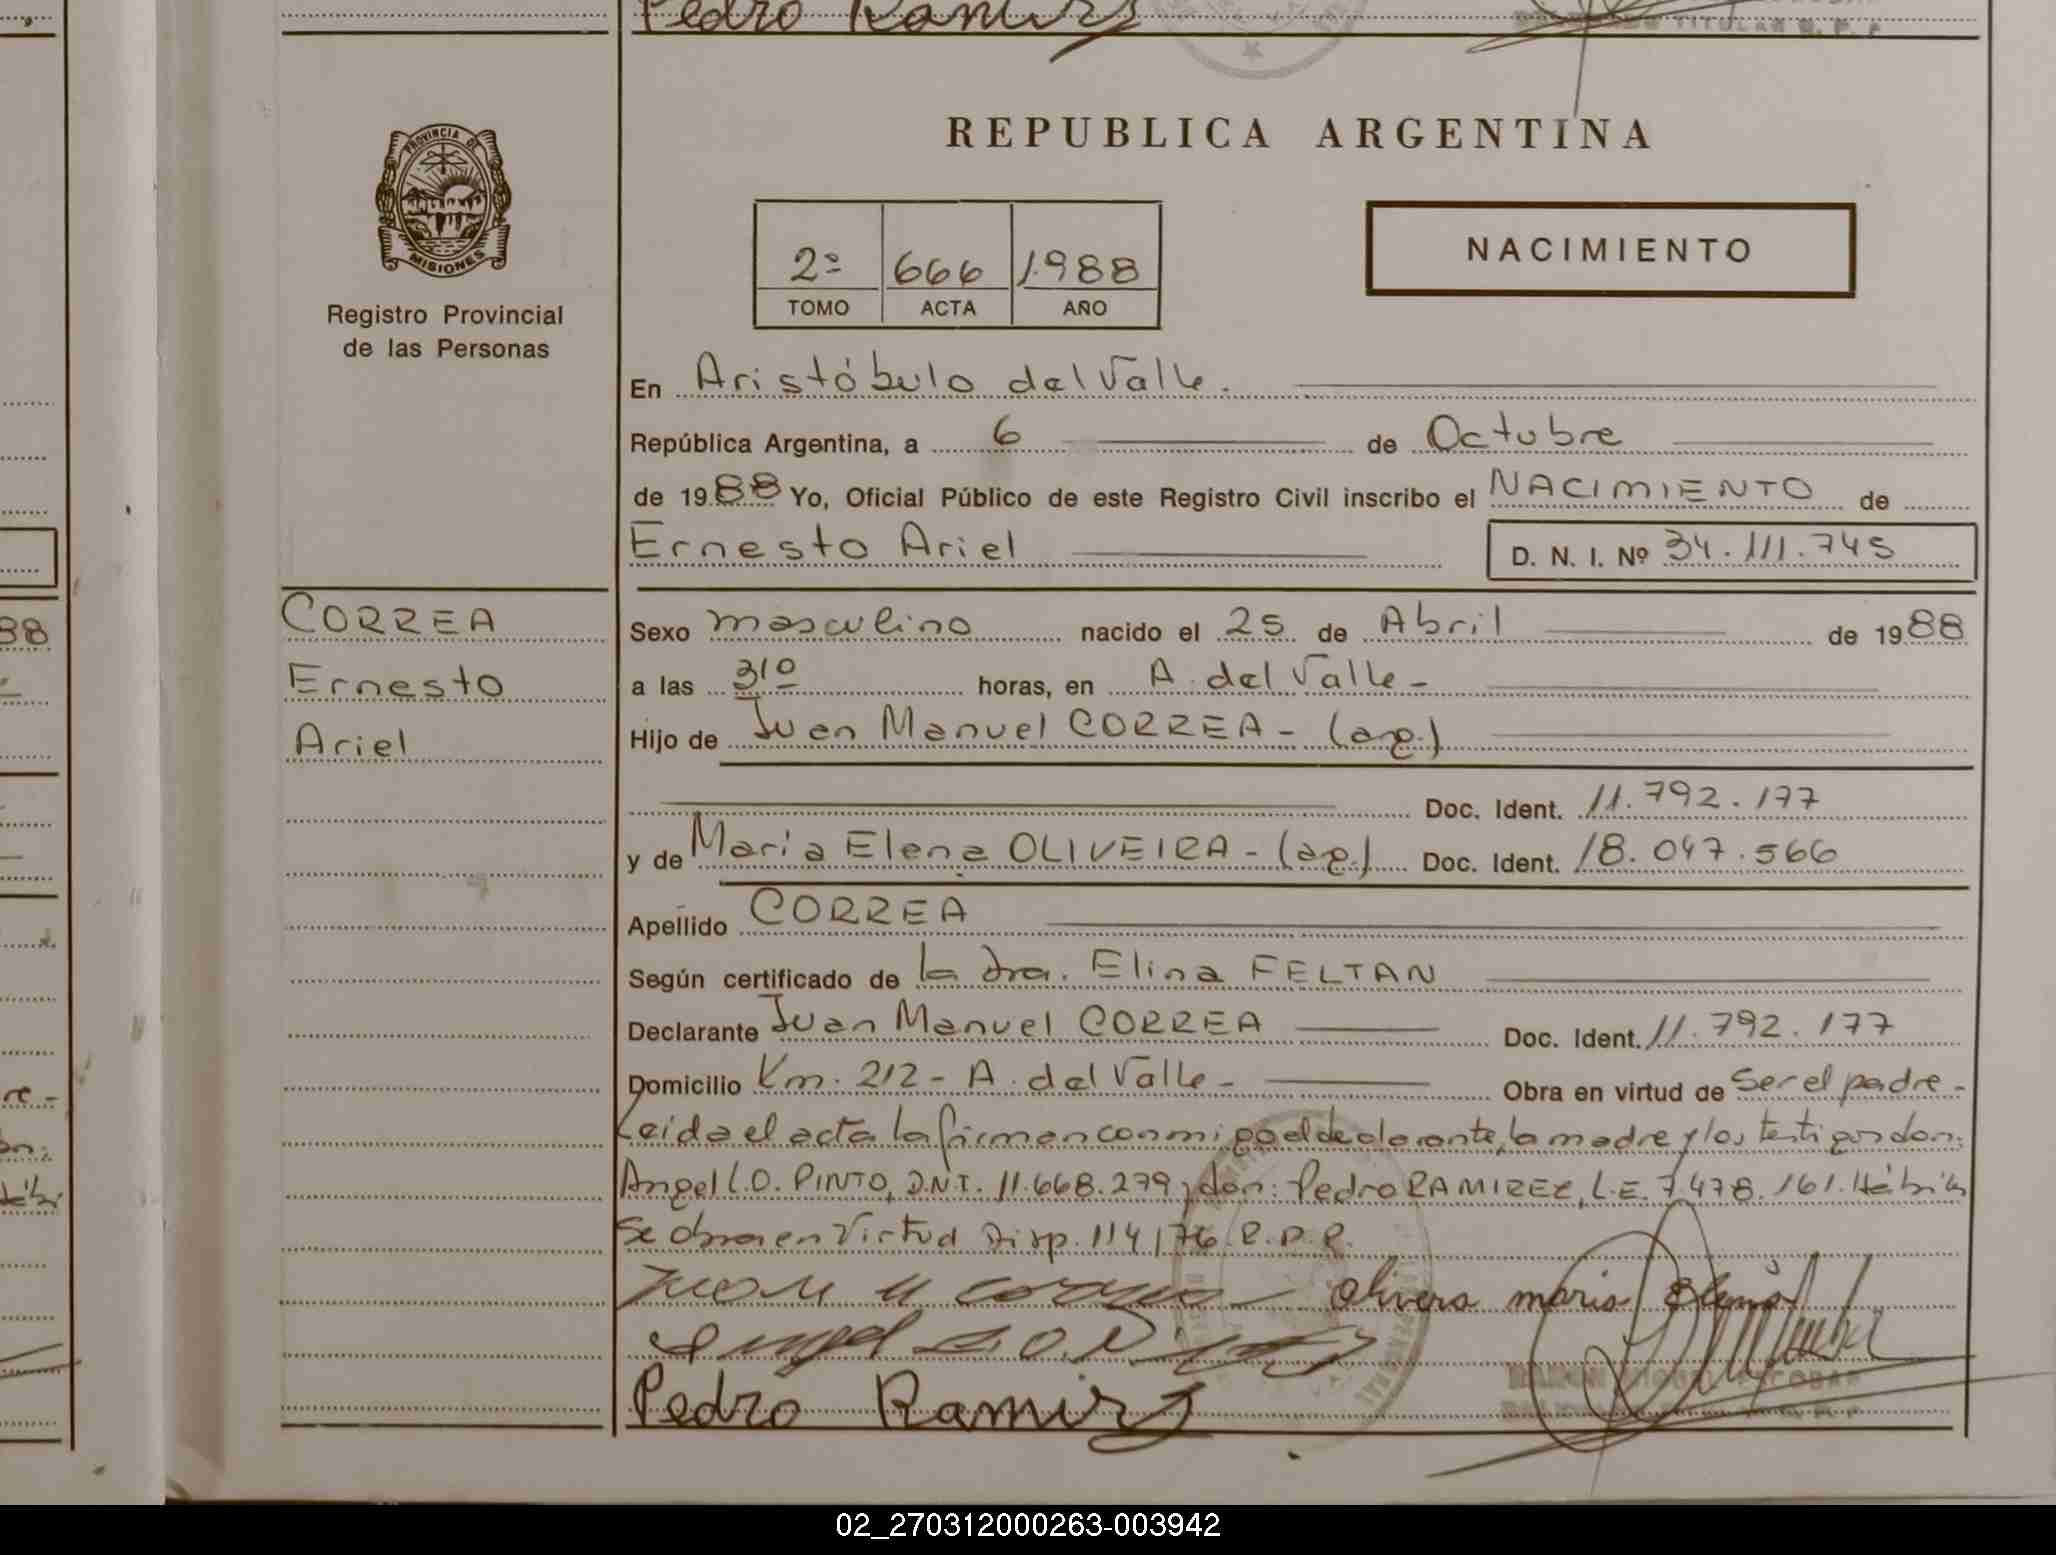 Pedro Ramirez
TITULAR R. P. P
PROVINCIA DE
MISIONES
Registro Provincial
de las Personas
REPUBLICA ARGENTINA
2º 666 1.988
TOMO ACTA AÑO
NACIMIENTO
En Aristóbulo del Valle.
República Argentina, a 6 de Octubre
de 1988 Yo, Oficial Público de este Registro Civil inscribo el NACIMIENTO de
Ernesto Ariel D. N. I. Nº 34.111.745
CORREA
Ernesto
Ariel
Sexo masculino nacido el 25 de Abril de 1988
a las 310 horas, en A. del Valle -
Hijo de Juan Manuel CORREA - (arg.)
Doc. Ident. 11.792.177
y de Maria Elena OLIVEIRA - (arg.) Doc. Ident. 18.047.566
Apellido CORREA
Según certificado de la Dra. Elina FELTAN
Declarante Juan Manuel CORREA Doc. Ident. 11.792.177
Domicilio Km. 212 - A. del Valle - Obra en virtud de Ser el padre -
Leida el acta la firman conmigo el declarante, la madre y los testigos don:
Angel L.O. PINTO, D.N.I. 11.668.279 y don: Pedro RAMIREZ, L.E. 7.478.161. Hábiles
Se obra en Virtud Disp. 114/76. R.P.P.
Juan M Correa Olivera maria Elena
Angel L.O. Pinto
RAMON MIGUEL ESCOBAR
Pedro Ramirez
88
02_270312000263-003942